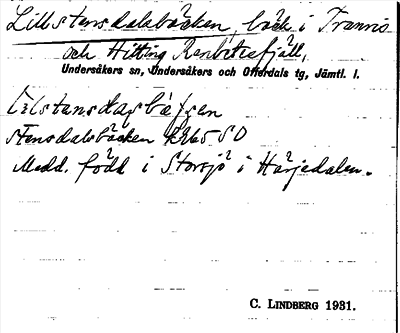 Lillstensdalsbäcken, bäck i Tranris
och Hitting Renbetesfjäll,
Undersåkers sn, Undersåkers och Offerdals tg, Jämtl. l.
Stensdalsbäcken
Medd. född i Storsjö i Härjedalen.
C. LINDBERG 1931.